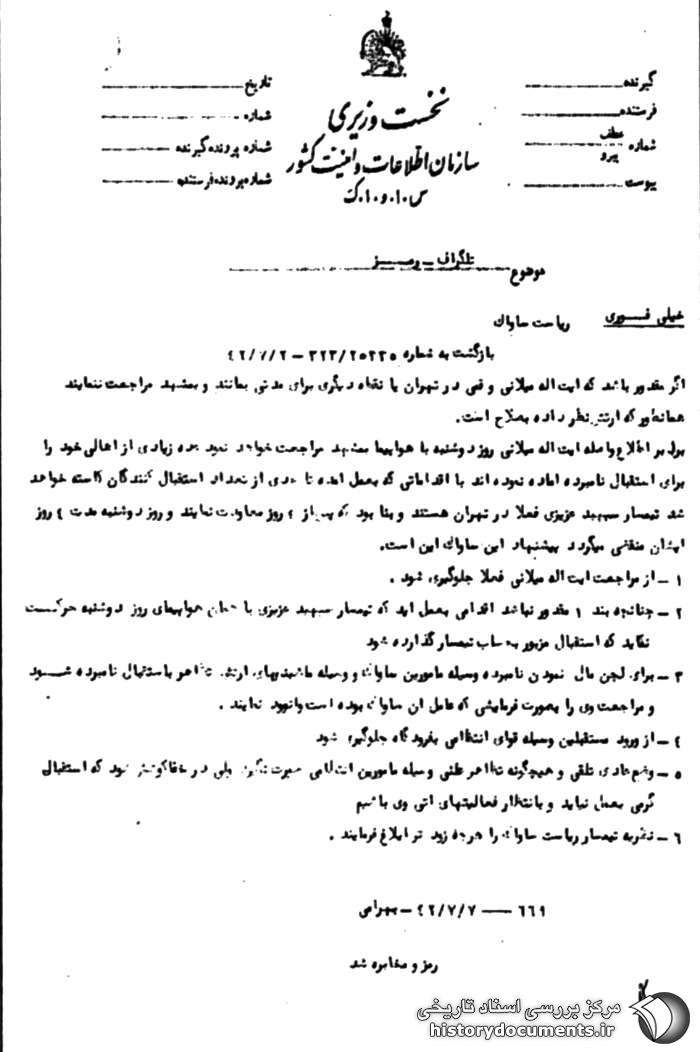 نخست وزیری
سازمان اطلاعات و امنیت کشور
س.ا.و.ا.ک
گیرنده
فرستنده
شماره عطف پیرو
پیوست
تاریخ
شماره
شماره پرونده گیرنده
شماره پرونده فرستنده
موضوع تلگراف ـ رمز
خیلی فوری ریاست ساواك
بازگشت به شماره ۳۲۳/۲۵۳۳۵ – ۴۲/۷/۲
اگر مقدور باشد که ایت اله میلانی وقمی در تهران یا نقاط دیگری برای مدتی بمانند و بمشهد مراجعت ننمایند
همانطور که ارتش نظر داده بصلاح است.
برابر اطلاع واصله ایت اله میلانی روز دوشنبه با هواپیما بمشهد مراجعت خواهد نمود عده زیادی از اهالی خود را
برای استقبال نامبرده اماده نموده اند با اقداماتی که بعمل امده تا حدی از تعداد استقبال کنندگان کاسته خواهد
شد تیمسار سپهبد عزیزی فعلا در تهران هستند و بنا بود که پس از ۴ روز معاودت نمایند و روز دوشنبه مدت ۴ روز
ایشان منقضی میگردد پیشنهاد این ساواك این است.
۱ – از مراجعت ایت اله میلانی فعلا جلوگیری شود .
۲ – چنانچه بند ۱ مقدور نباشد اقدامی بعمل اید که تیمسار سپهبد عزیزی با همان هواپیمای روز دوشنبه حرکت
نماید که استقبال مزبور بحساب تیمسار گذارده شود
۳ – برای لجن مال نمودن نامبرده وسیله مامورین ساواك و وسیله ماشینهای ارتش تظاهر باستقبال نامبرده شود
و مراجعت وی را بصورت فرمایشی که عامل ان ساواك بوده است وانمود نمایند .
۴ – از ورود مستقبلین وسیله قوای انتظامی بفرودگاه جلوگیری شود
۵ – وضع عادی تلقی و هیچگونه تظاهر علنی وسیله مامورین انتظامی صورت نگیرد ولی در خفا کوشش شود که استقبال
گرمی بعمل نیاید و بانتظار فعالیتهای اتی وی باشیم
۶ – نظریه تیمسار ریاست ساواك را هرچه زود تر ابلاغ فرمایند .
۶۶۹ – ۴۲/۷/۷ – بهرامی
رمز و مخابره شد
مرکز بررسی اسناد تاریخی
historydocuments.ir